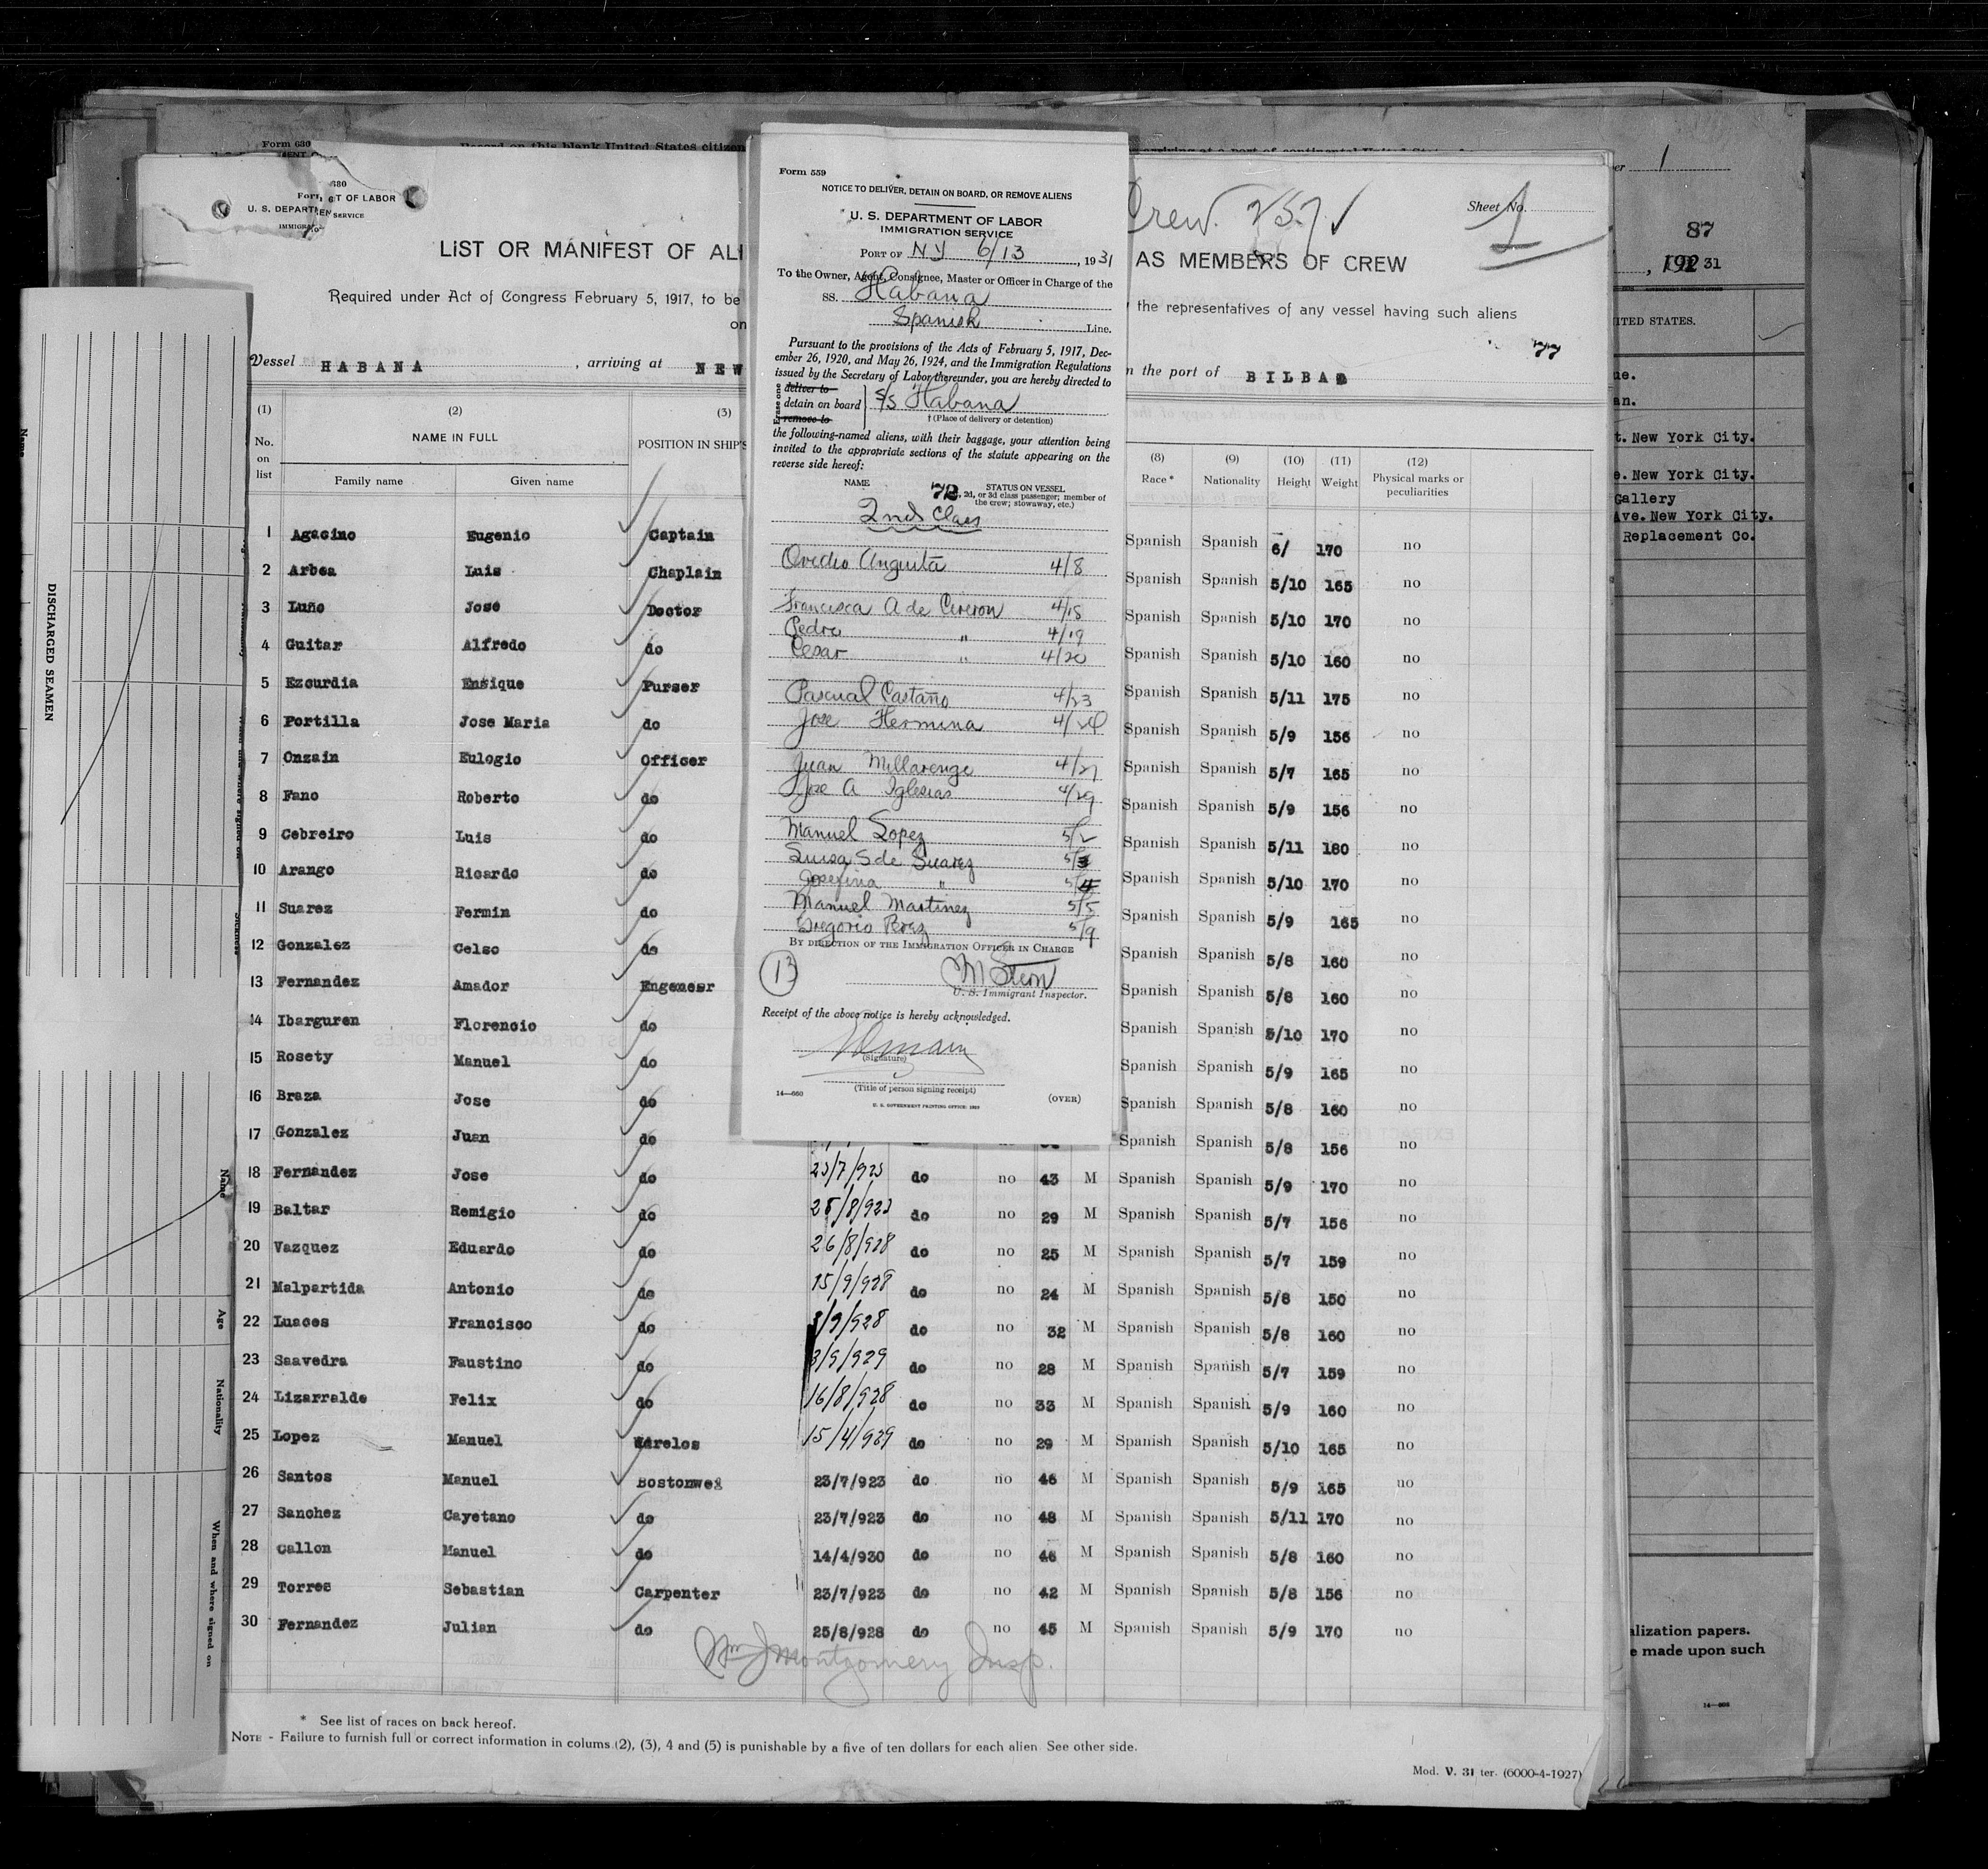 Form 630
Record on this blank United States citizen
arriving at a port of continental United
1
87
31
UNITED STATES.
New York City.
New York City.
Gallery
Ave. New York City.
Replacement Co.
alization papers.
e made upon such
DISCHARGED SEAMEN
Name
Age
Nationality
When and where signed on
U. S. DEPARTMENT OF LABOR
Crew. 257 ✓
Sheet No. 1
LIST OR MANIFEST OF ALI
AS MEMBERS OF CREW
Required under Act of Congress February 5, 1917, to be
the representatives of any vessel having such aliens
on
77
Vessel HABANA, arriving at NEW
the port of BILBAO
(1) (2) (3) (8) (9) (10) (11) (12)
No. on list NAME IN FULL POSITION IN SHIP'S Race* Nationality Height Weight Physical marks or peculiarities
Family name Given name
1 Agacino Eugenio Captain Spanish Spanish 6/ 170 no
2 Arbea Luis Chaplain Spanish Spanish 5/10 165 no
3 Luño José Doctor Spanish Spanish 5/10 170 no
4 Guitar Alfredo do Spanish Spanish 5/10 160 no
5 Ezcurdia Enrique Purser Spanish Spanish 5/11 175 no
6 Portilla Jose Maria do Spanish Spanish 5/9 156 no
7 Onzain Eulogio Officer Spanish Spanish 5/7 165 no
8 Fano Roberto do Spanish Spanish 5/9 156 no
9 Cebreiro Luis do Spanish Spanish 5/11 180 no
10 Arango Ricardo do Spanish Spanish 5/10 170 no
11 Suarez Fermin do Spanish Spanish 5/9 165 no
12 Gonzalez Celso do Spanish Spanish 5/8 160 no
13 Fernandez Amador Engeneer Spanish Spanish 5/8 160 no
14 Ibarguren Florencio do Spanish Spanish 5/10 170 no
15 Rosety Manuel do Spanish Spanish 5/9 165 no
16 Braza Jose do Spanish Spanish 5/8 160 no
17 Gonzalez Juan do Spanish Spanish 5/8 156 no
18 Fernandez Jose do 23/7/923 do no 43 M Spanish Spanish 5/9 170 no
19 Baltar Remigio do 25/8/923 do no 29 M Spanish Spanish 5/7 156 no
20 Vazquez Eduardo do 26/8/928 do no 25 M Spanish Spanish 5/7 159 no
21 Malpartida Antonio do 15/9/928 do no 24 M Spanish Spanish 5/8 150 no
22 Luaces Francisco do /9/928 do no 32 M Spanish Spanish 5/8 160 no
23 Saavedra Faustino do 3/9/929 do no 28 M Spanish Spanish 5/7 159 no
24 Lizarralde Felix do 16/8/928 do no 33 M Spanish Spanish 5/9 160 no
25 Lopez Manuel Wirelos 15/4/929 do no 29 M Spanish Spanish 5/10 165 no
26 Santos Manuel Bostonweg 23/7/923 do no 46 M Spanish Spanish 5/9 165 no
27 Sanchez Cayetano do 23/7/923 do no 48 M Spanish Spanish 5/11 170 no
28 Gallon Manuel do 14/4/930 do no 46 M Spanish Spanish 5/8 160 no
29 Torres Sebastian Carpenter 23/7/923 do no 42 M Spanish Spanish 5/8 156 no
30 Fernandez Julian do 25/8/928 do no 45 M Spanish Spanish 5/9 170 no
Wm J Montgomery Insp.
* See list of races on back hereof.
NOTE - Failure to furnish full or correct information in colums (2), (3), 4 and (5) is punishable by a five of ten dollars for each alien See other side.
Mod. V. 31 ter. (6000-4-1927)
Form 559
NOTICE TO DELIVER, DETAIN ON BOARD, OR REMOVE ALIENS
U. S. DEPARTMENT OF LABOR
IMMIGRATION SERVICE
PORT OF NY 6/13, 1931
To the Owner, Agent, Consignee, Master or Officer in Charge of the
SS. Habana
Spanish Line.
Pursuant to the provisions of the Acts of February 5, 1917, Dec-
ember 26, 1920, and May 26, 1924, and the Immigration Regulations
issued by the Secretary of Labor thereunder, you are hereby directed to
Erase one
deliver to
detain on board S/S Habana
remove to
† (Place of delivery or detention)
the following-named aliens, with their baggage, your attention being
invited to the appropriate sections of the statute appearing on the
reverse side hereof:
NAME STATUS ON VESSEL
72, 2d, or 3d class passenger; member of
the crew; stowaway, etc.)
2nd Class
Ovedio Anguita 4/8
Francisca A de Cireron 4/15
Pedro " 4/19
Cesar " 4/20
Pascual Castaño 4/23
Jose Hermina 4/24
Juan Millarengo 4/27
Jose A Iglesias 4/29
Manuel Lopez 5/2
Luisa S de Suarez 5/3
Josefina " 5/4
Manuel Martinez 5/5
Gregorio Perez 5/9
BY DIRECTION OF THE IMMIGRATION OFFICER IN CHARGE
13
M Stern
U. S. Immigrant Inspector.
Receipt of the above notice is hereby acknowledged.
(Signature)
(Title of person signing receipt)
14—660
(OVER)
U. S. GOVERNMENT PRINTING OFFICE